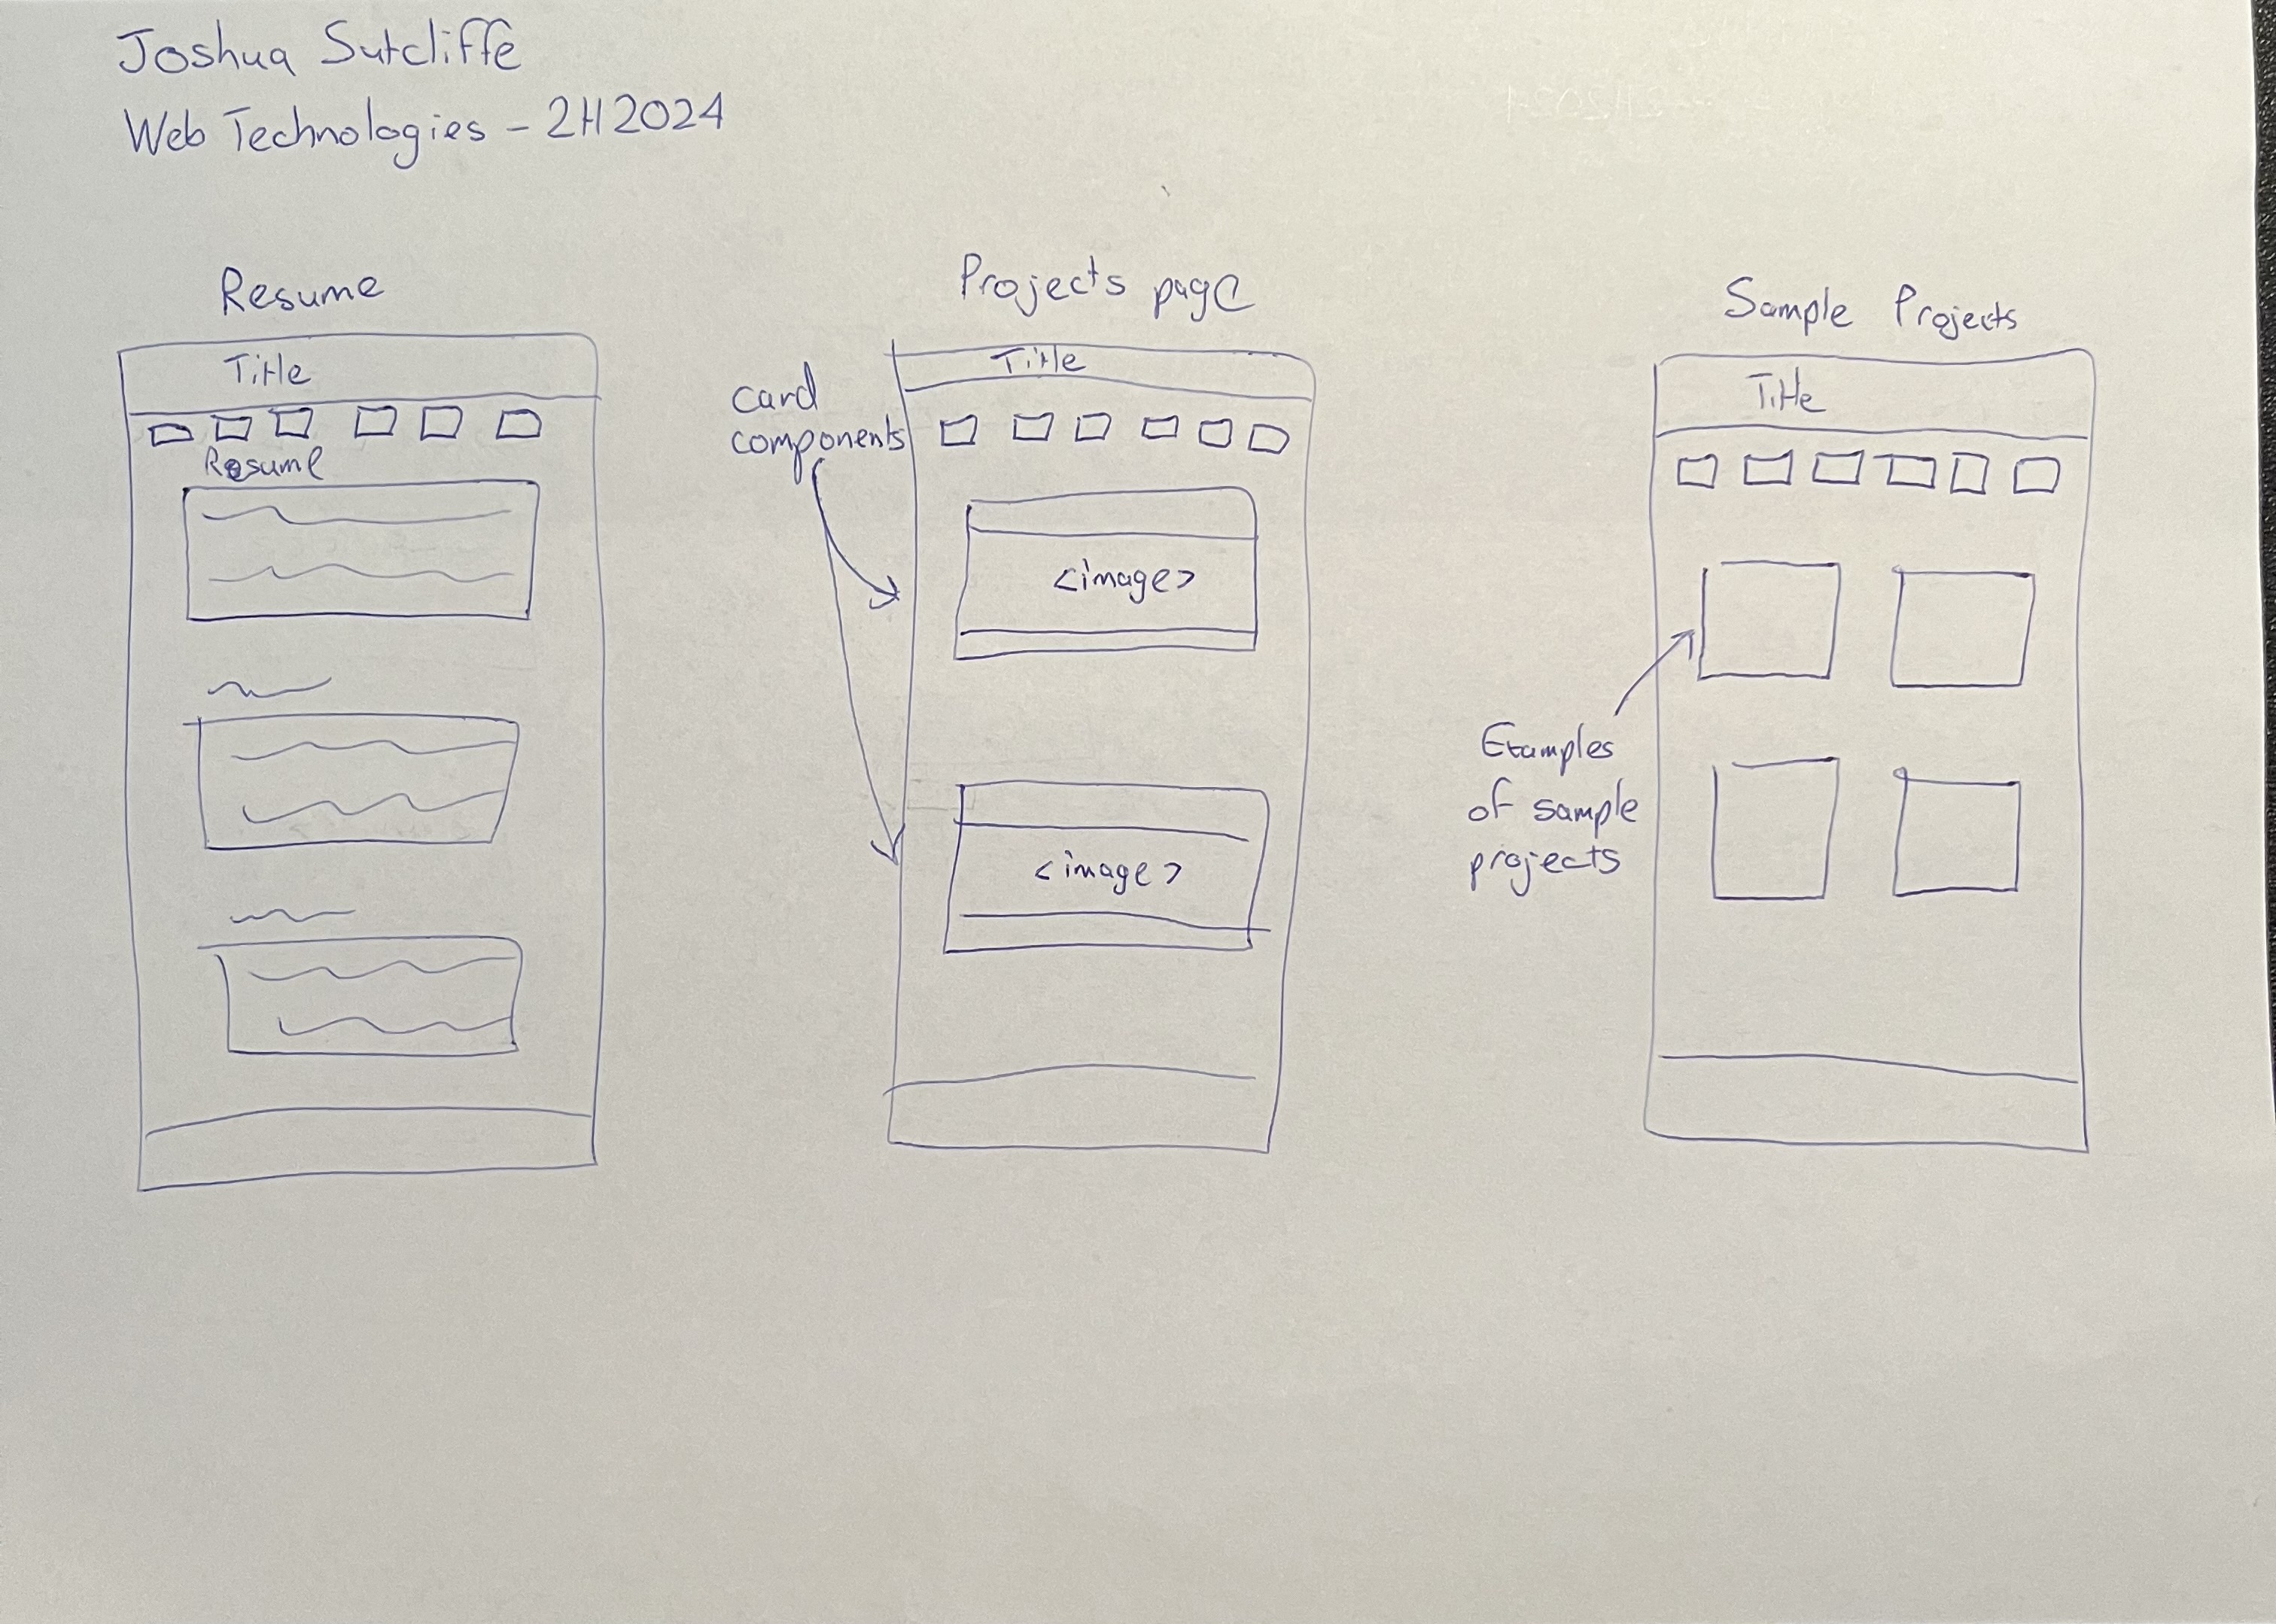 Joshua Sutcliffe
Web Technologies - 2H2024
Resume
Title
Resume
Projects page
Title
card
components
<image>
<image>
Sample Projects
Title
Examples
of sample
projects